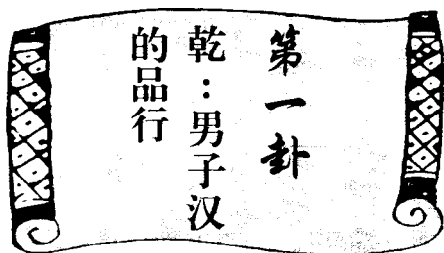 第一卦
乾：男子汉
的品行